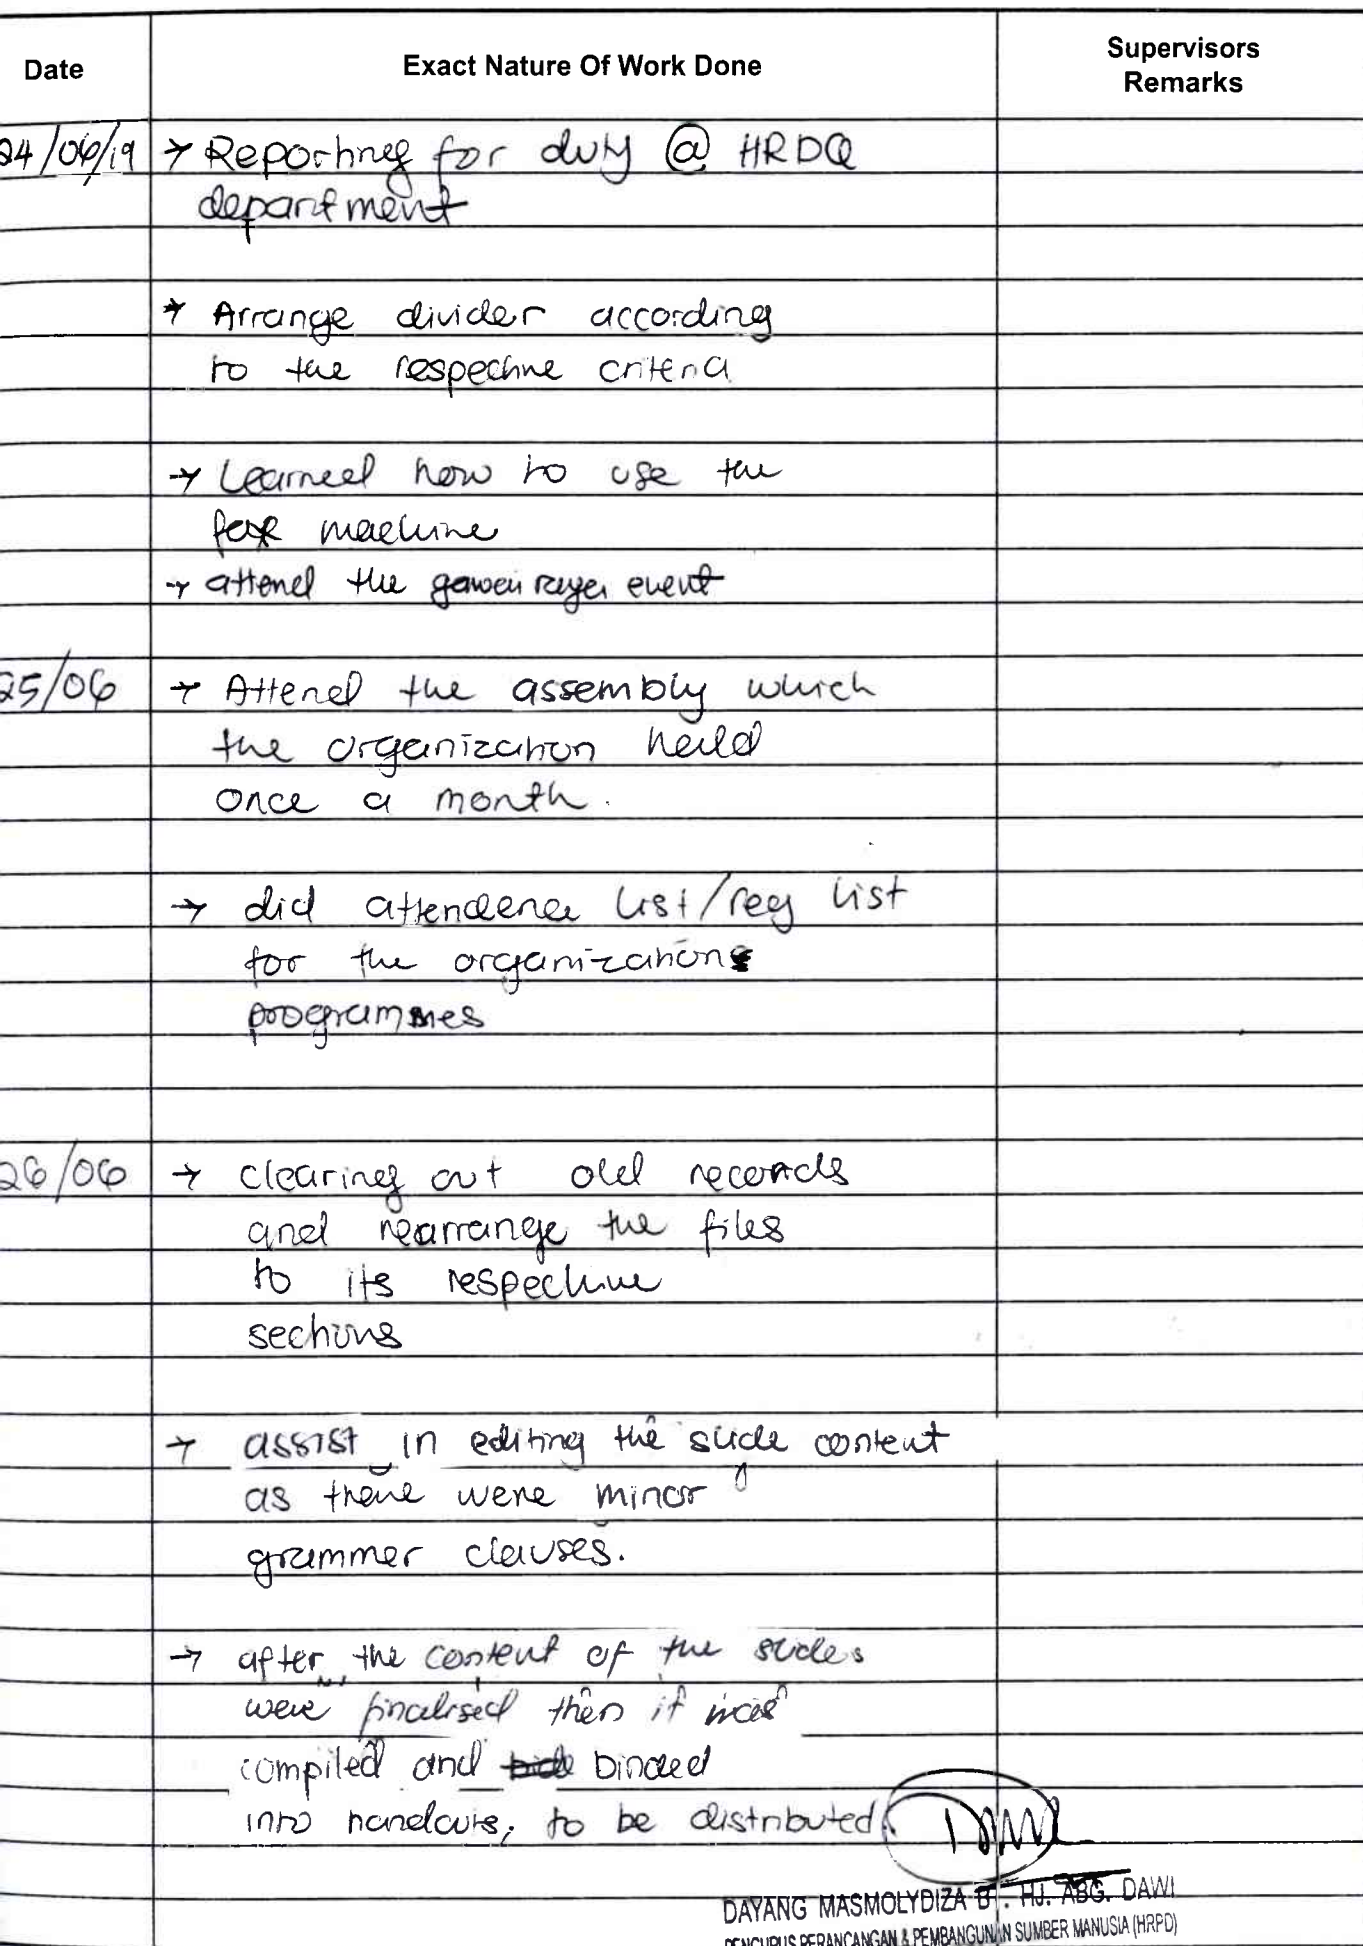 Date
Exact Nature Of Work Done
Supervisors
Remarks
24/06/19 → Reporting for duty @ HRDQ
department
→ Arrange divider according
to the respective criteria
→ Learned how to use the
fax machine
→ attend the gawai raya event
25/06 → Attend the assembly which
the organization heild
once a month.
→ did attendence list/reg list
for the organization
programmes
26/06 → clearing out old records
and rearrange the files
to its respective
sections
→ assist in editing the slide content
as there were minor
grammer clauses.
→ after the content of the slides
were finalised then it was
compiled and binded
into handouts, to be distributed.
DAYANG MASMOLYDIZA BT. HJ. ABG. DAWI
PENGURUS PERANCANGAN & PEMBANGUNAN SUMBER MANUSIA (HRPD)